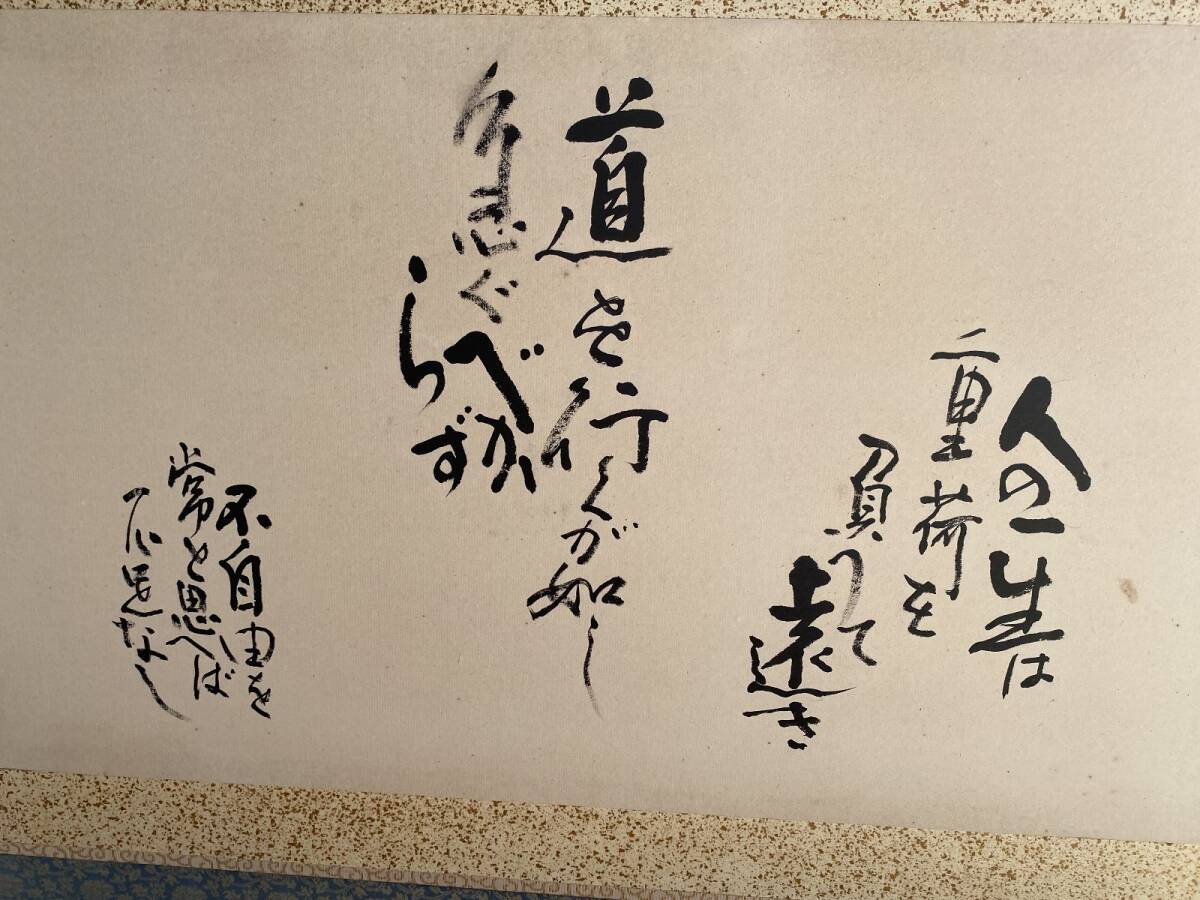 人の一生は
重荷を
負うて
遠き
道を行くが如し
急ぐ
べか
らず
不自由を
常と思へば
不足なし